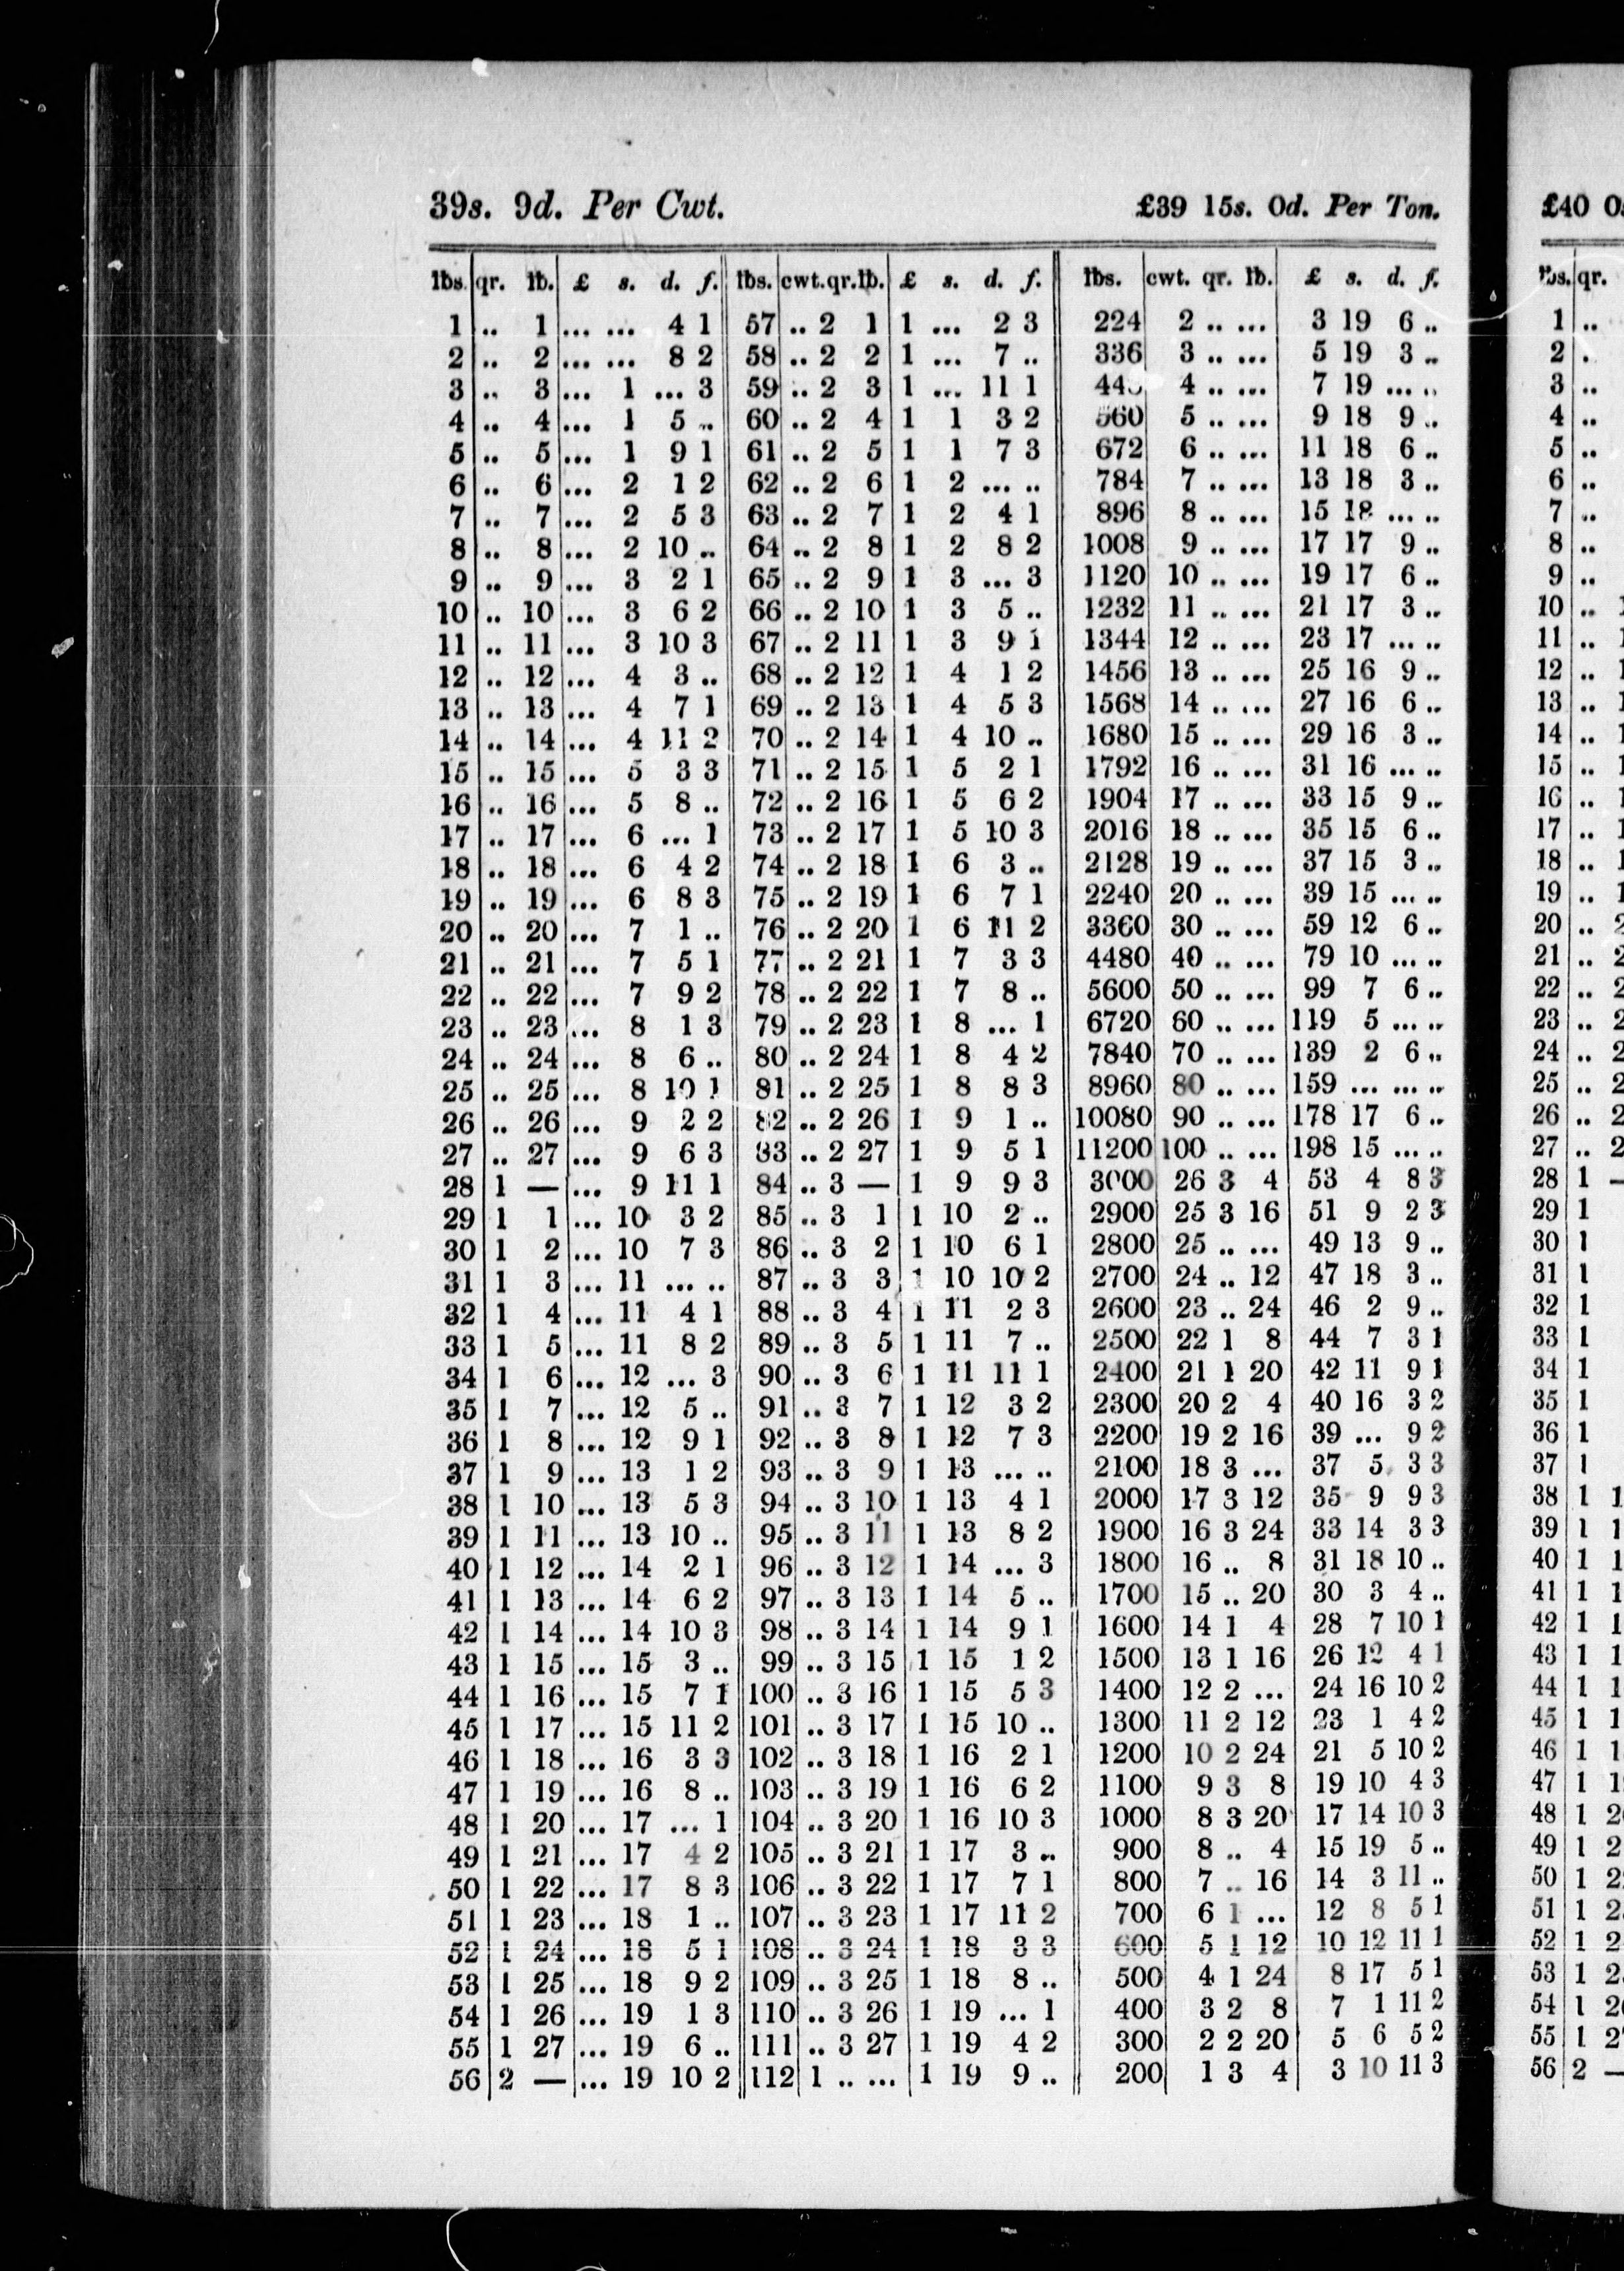 39s. 9d. Per Cwt. £39 15s. 0d. Per Ton. £40 0s
lbs. qr. lb. £ s. d. f. lbs. cwt. qr. lb. £ s. d. f. lbs. cwt. qr. lb. £ s. d. f. lbs. qr.
1 .. 1 ... ... 4 1 57 .. 2 1 1 ... 2 3 224 2 .. ... 3 19 6 .. 1 ..
2 .. 2 ... ... 8 2 58 .. 2 2 1 ... 7 .. 336 3 .. ... 5 19 3 .. 2 .
3 .. 3 ... 1 ... 3 59 .. 2 3 1 ... 11 1 44 4 .. ... 7 19 ... .. 3 ..
4 .. 4 ... 1 5 .. 60 .. 2 4 1 1 3 2 560 5 .. ... 9 18 9 .. 4 ..
5 .. 5 ... 1 9 1 61 .. 2 5 1 1 7 3 672 6 .. ... 11 18 6 .. 5 ..
6 .. 6 ... 2 1 2 62 .. 2 6 1 2 ... .. 784 7 .. ... 13 18 3 .. 6 ..
7 .. 7 ... 2 5 3 63 .. 2 7 1 2 4 1 896 8 .. ... 15 18 ... .. 7 ..
8 .. 8 ... 2 10 .. 64 .. 2 8 1 2 8 2 1008 9 .. ... 17 17 9 .. 8 ..
9 .. 9 ... 3 2 1 65 .. 2 9 1 3 ... 3 1120 10 .. ... 19 17 6 .. 9 ..
10 .. 10 ... 3 6 2 66 .. 2 10 1 3 5 .. 1232 11 .. ... 21 17 3 .. 10 .. 1
11 .. 11 ... 3 10 3 67 .. 2 11 1 3 9 1 1344 12 .. ... 23 17 ... .. 11 .. 1
12 .. 12 ... 4 3 .. 68 .. 2 12 1 4 1 2 1456 13 .. ... 25 16 9 .. 12 .. 1
13 .. 13 ... 4 7 1 69 .. 2 13 1 4 5 3 1568 14 .. ... 27 16 6 .. 13 .. 1
14 .. 14 ... 4 11 2 70 .. 2 14 1 4 10 .. 1680 15 .. ... 29 16 3 .. 14 .. 1
15 .. 15 ... 5 3 3 71 .. 2 15 1 5 2 1 1792 16 .. ... 31 16 ... .. 15 .. 1
16 .. 16 ... 5 8 .. 72 .. 2 16 1 5 6 2 1904 17 .. ... 33 15 9 .. 16 .. 1
17 .. 17 ... 6 ... 1 73 .. 2 17 1 5 10 3 2016 18 .. ... 35 15 6 .. 17 .. 1
18 .. 18 ... 6 4 2 74 .. 2 18 1 6 3 .. 2128 19 .. ... 37 15 3 .. 18 .. 1
19 .. 19 ... 6 8 3 75 .. 2 19 1 6 7 1 2240 20 .. ... 39 15 ... .. 19 .. 1
20 .. 20 ... 7 1 .. 76 .. 2 20 1 6 11 2 3360 30 .. ... 59 12 6 .. 20 .. 2
21 .. 21 ... 7 5 1 77 .. 2 21 1 7 3 3 4480 40 .. ... 79 10 ... .. 21 .. 2
22 .. 22 ... 7 9 2 78 .. 2 22 1 7 8 .. 5600 50 .. ... 99 7 6 .. 22 .. 2
23 .. 23 ... 8 1 3 79 .. 2 23 1 8 ... 1 6720 60 .. ... 119 5 ... .. 23 .. 2
24 .. 24 ... 8 6 .. 80 .. 2 24 1 8 4 2 7840 70 .. ... 139 2 6 .. 24 .. 2
25 .. 25 ... 8 10 1 81 .. 2 25 1 8 8 3 8960 80 .. ... 159 ... ... .. 25 .. 2
26 .. 26 ... 9 2 2 82 .. 2 26 1 9 1 .. 10080 90 .. ... 178 17 6 .. 26 .. 2
27 .. 27 ... 9 6 3 83 .. 2 27 1 9 5 1 11200 100 .. ... 198 15 ... .. 27 .. 2
28 1 — ... 9 11 1 84 .. 3 — 1 9 9 3 3000 26 3 4 53 4 8 3 28 1 —
29 1 1 ... 10 3 2 85 .. 3 1 1 10 2 .. 2900 25 3 16 51 9 2 3 29 1
30 1 2 ... 10 7 3 86 .. 3 2 1 10 6 1 2800 25 .. ... 49 13 9 .. 30 1
31 1 3 ... 11 ... .. 87 .. 3 3 1 10 10 2 2700 24 .. 12 47 18 3 .. 31 1
32 1 4 ... 11 4 1 88 .. 3 4 1 11 2 3 2600 23 .. 24 46 2 9 .. 32 1
33 1 5 ... 11 8 2 89 .. 3 5 1 11 7 .. 2500 22 1 8 44 7 3 1 33 1
34 1 6 ... 12 ... 3 90 .. 3 6 1 11 11 1 2400 21 1 20 42 11 9 1 34 1
35 1 7 ... 12 5 .. 91 .. 3 7 1 12 3 2 2300 20 2 4 40 16 3 2 35 1
36 1 8 ... 12 9 1 92 .. 3 8 1 12 7 3 2200 19 2 16 39 ... 9 2 36 1
37 1 9 ... 13 1 2 93 .. 3 9 1 13 ... .. 2100 18 3 ... 37 5 3 3 37 1
38 1 10 ... 13 5 3 94 .. 3 10 1 13 4 1 2000 17 3 12 35 9 9 3 38 1 1
39 1 11 ... 13 10 .. 95 .. 3 11 1 13 8 2 1900 16 3 24 33 14 3 3 39 1 1
40 1 12 ... 14 2 1 96 .. 3 12 1 14 ... 3 1800 16 .. 8 31 18 10 .. 40 1 1
41 1 13 ... 14 6 2 97 .. 3 13 1 14 5 .. 1700 15 .. 20 30 3 4 .. 41 1 1
42 1 14 ... 14 10 3 98 .. 3 14 1 14 9 1 1600 14 1 4 28 7 10 1 42 1 1
43 1 15 ... 15 3 .. 99 .. 3 15 1 15 1 2 1500 13 1 16 26 12 4 1 43 1 1
44 1 16 ... 15 7 1 100 .. 3 16 1 15 5 3 1400 12 2 ... 24 16 10 2 44 1 1
45 1 17 ... 15 11 2 101 .. 3 17 1 15 10 .. 1300 11 2 12 23 1 4 2 45 1 1
46 1 18 ... 16 3 3 102 .. 3 18 1 16 2 1 1200 10 2 24 21 5 10 2 46 1 1
47 1 19 ... 16 8 .. 103 .. 3 19 1 16 6 2 1100 9 3 8 19 10 4 3 47 1 1
48 1 20 ... 17 ... 1 104 .. 3 20 1 16 10 3 1000 8 3 20 17 14 10 3 48 1 2
49 1 21 ... 17 4 2 105 .. 3 21 1 17 3 .. 900 8 .. 4 15 19 5 .. 49 1 2
50 1 22 ... 17 8 3 106 .. 3 22 1 17 7 1 800 7 .. 16 14 3 11 .. 50 1 2
51 1 23 ... 18 1 .. 107 .. 3 23 1 17 11 2 700 6 1 ... 12 8 5 1 51 1 2
52 1 24 ... 18 5 1 108 .. 3 24 1 18 3 3 600 5 1 12 10 12 11 1 52 1 2
53 1 25 ... 18 9 2 109 .. 3 25 1 18 8 .. 500 4 1 24 8 17 5 1 53 1 2
54 1 26 ... 19 1 3 110 .. 3 26 1 19 ... 1 400 3 2 8 7 1 11 2 54 1 2
55 1 27 ... 19 6 .. 111 .. 3 27 1 19 4 2 300 2 2 20 5 6 5 2 55 1 2
56 2 — ... 19 10 2 112 1 .. ... 1 19 9 .. 200 1 3 4 3 10 11 3 56 2 —